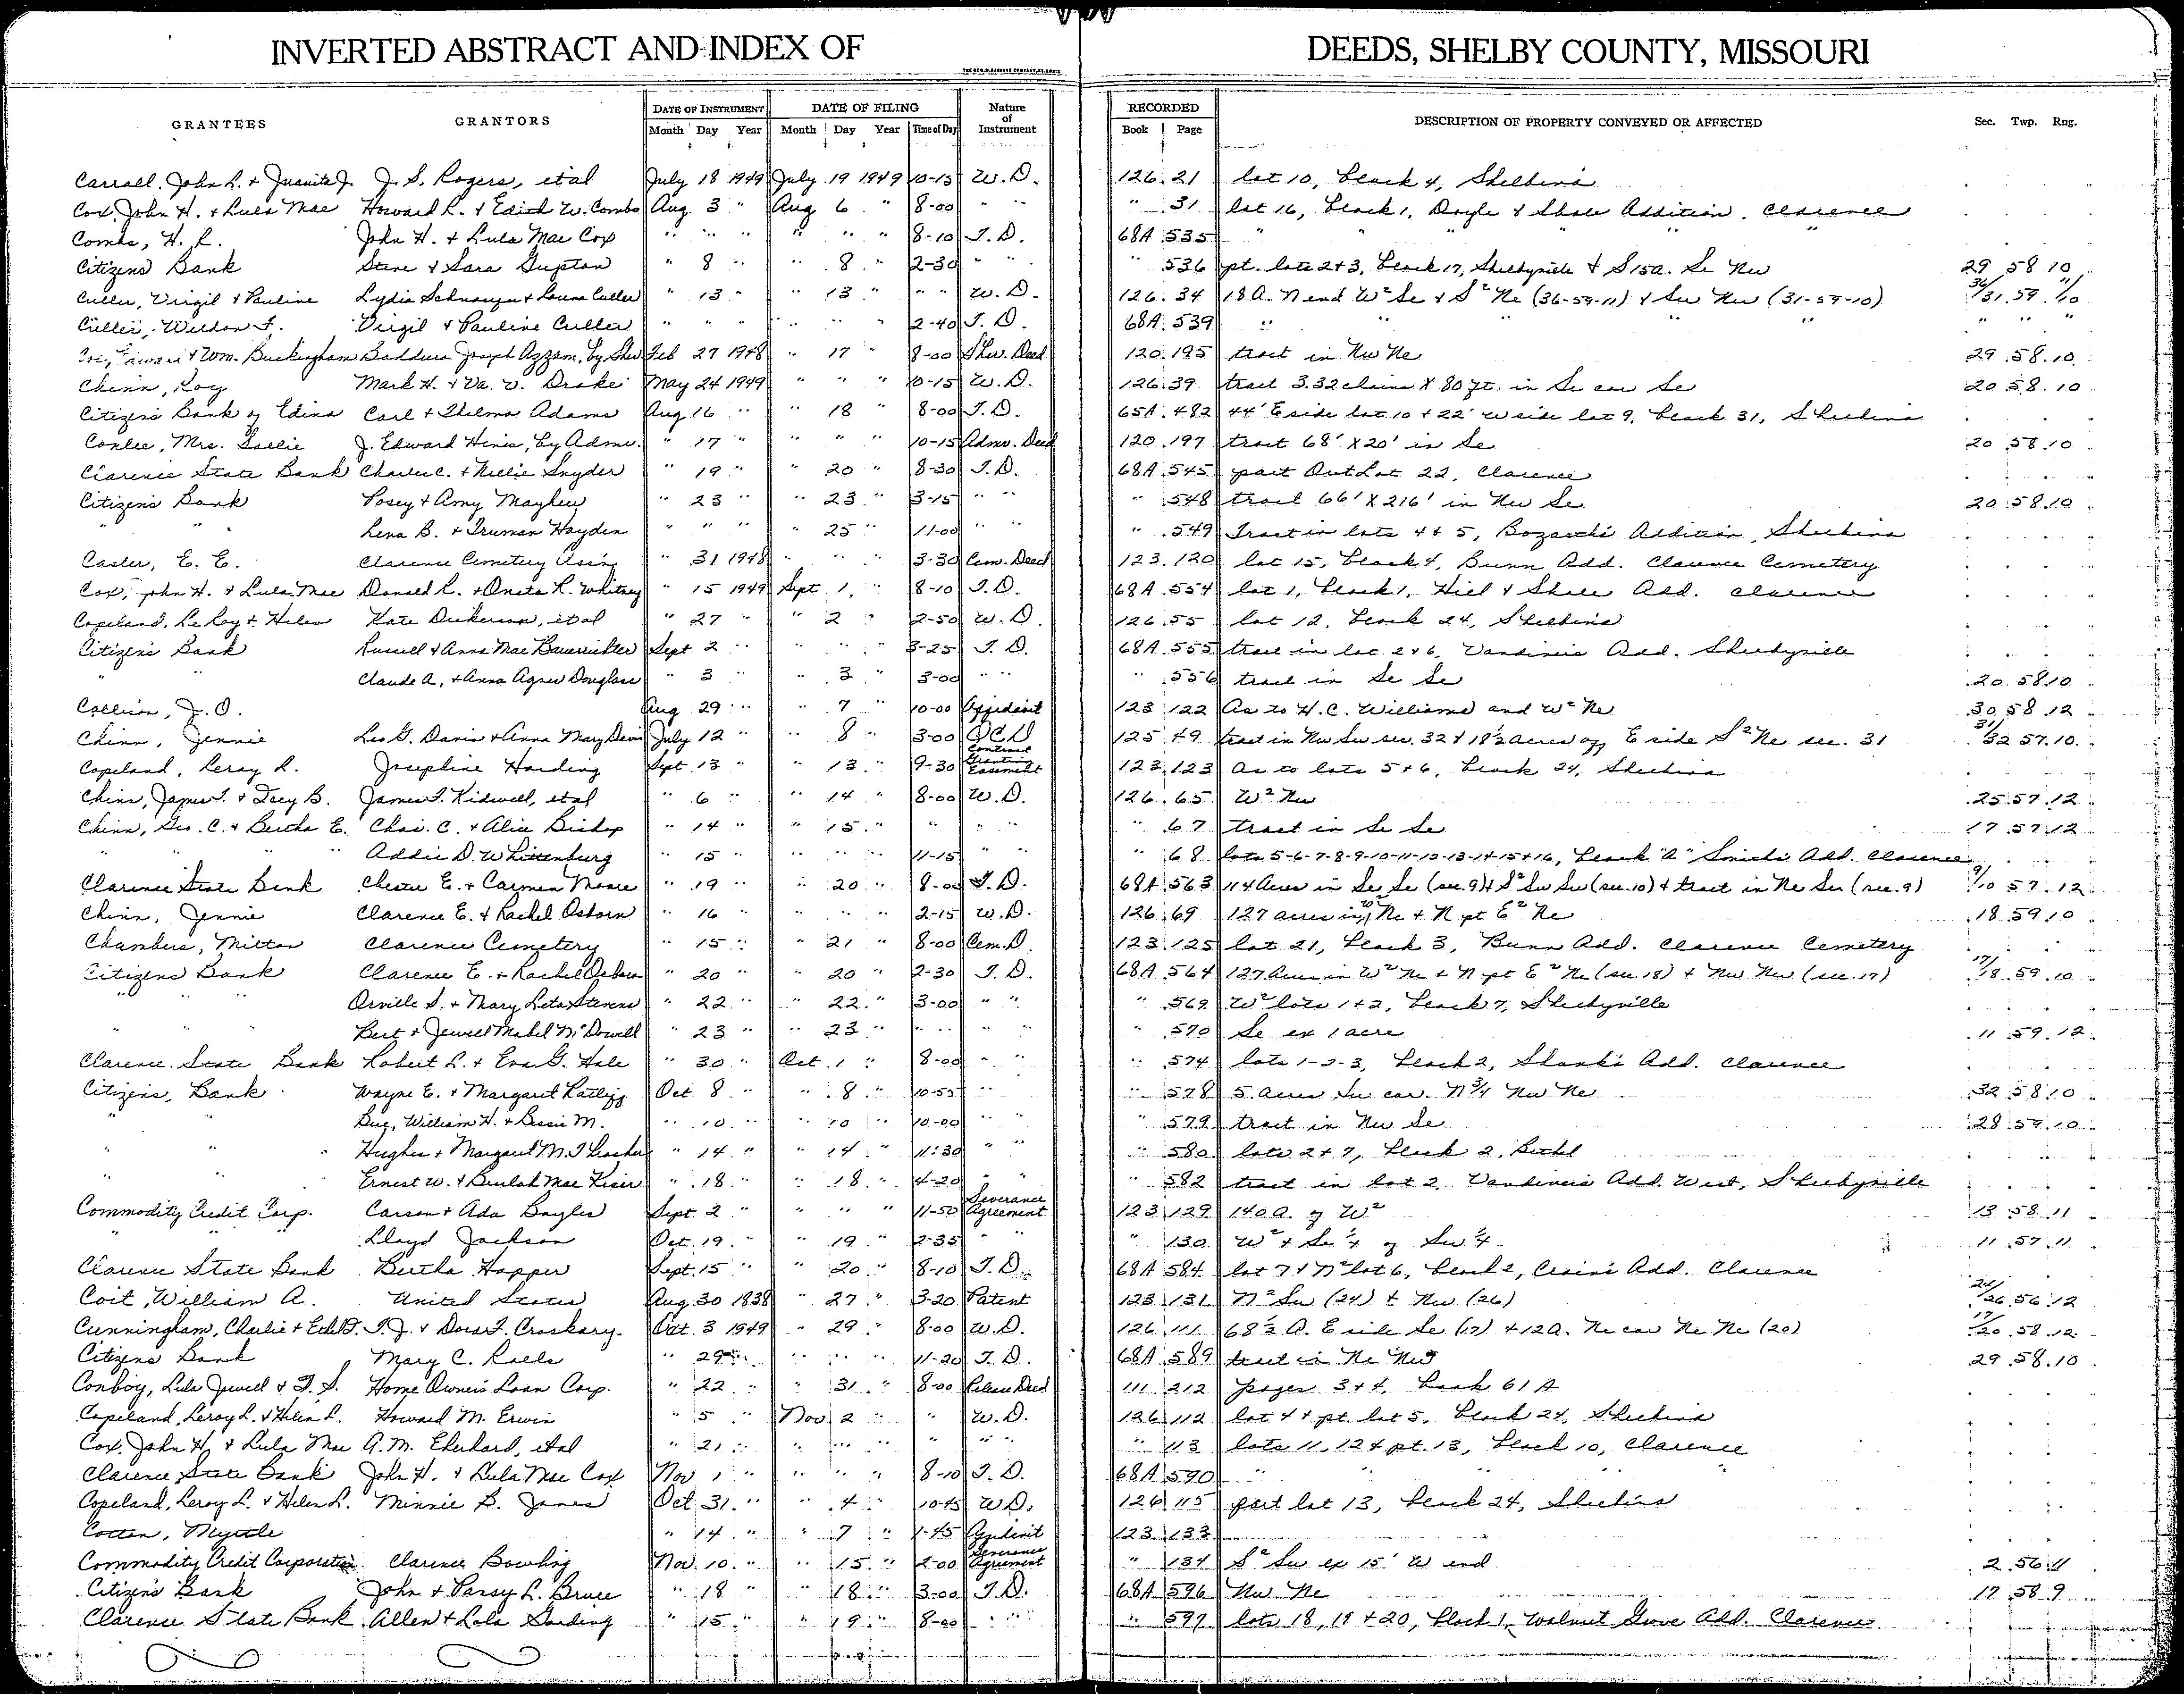 INVERTED ABSTRACT AND INDEX OF DEEDS, SHELBY COUNTY, MISSOURI
GRANTEES GRANTORS DATE OF INSTRUMENT DATE OF FILING Nature of Instrument RECORDED DESCRIPTION OF PROPERTY CONVEYED OR AFFECTED Sec. Twp. Rng.
Month Day Year Month Day Year Time of Day Book Page
Carroll, John L. + Juanita J. J. S. Rogers, et al July 18 1949 July 19 1949 10-15 W.D. 126 21 lot 10, block 4, Shelbina
Cox, John H. + Lula Mae Howard L. + Edith W. Combs Aug. 3 " Aug 6 " 8-00 " " " 31 lot 16, block 1, Doyle & Shale Addition, Clarence
Combs, H. L. John H. + Lula Mae Cox " " " " " " 8-10 T.D. 68A 535 " " " "
Citizens Bank Steve & Sara Gupton " 8 " " 8 " 2-30 " " " 536 pt. lots 2+3, block 17, Shelbyville & S 15a. Se Nw 29 58 10
Culler, Virgil & Pauline Lydia & Louna Culler " 13 " " 13 " " " W.D. 126 34 18 A. N end W² Se & S² Ne (36-59-11) & Sw Nw (31-59-10) 36/31 59 11/10
Culler, Weldon F. Virgil & Pauline Culler " " " " " " 2-40 T.D. 68A 539 " " " " " " "
+ Wm. Buckingham Joseph Azzam, by Shér Feb 27 1948 " 17 " 8-00 Sher. Deed 120 195 tract in Nw Ne 29 58 10
Chinn, Roy Mark H. + Va. V. Drake May 24 1949 " " " 10-15 W.D. 126 39 tract 3.32 chains X 80 ft. in Se cor Se 20 58 10
Citizens Bank of Edina Carl + Thelma Adams Aug 16 " " 18 " 8-00 T.D. 65A 482 44' E side lot 10 + 22' W side lot 9, block 31, Shelbina
Conlee, Mrs. Sallie J. Edward Hines, by Admr. " 17 " " " " 10-15 Admr. Deed 120 197 tract 68' X 20' in Se 20 58 10
Clarence State Bank Charles C. + Nellie Snyder " 19 " " 20 " 8-30 T.D. 68A 545 part Out Lot 22, Clarence
Citizens Bank Posey + Amy Mayhew " 23 " " 23 " 3-15 " " " 548 tract 66' X 216' in Nw Se 20 58 10
" " Lena B. + Truman Hayden " " " " 25 " 11-00 " " " 549 Tract in lots 4 + 5, Bozarth's Addition, Shelbina
Casler, E. E. Clarence Cemetery Ass'n " 31 1948 " " " 3-30 Cem. Deed 123 120 lot 15, block 4, Bunn Add. Clarence Cemetery
Cox, John H. + Lula Mae Donald L. + Oneta R. Whitney " 15 1949 Sept 1 " 8-10 T.D. 68A 554 lot 1, block 1, Hill & Shale Add. Clarence
Copeland, Le Roy + Helen Kate Dickerson, et al " 27 " " 2 " 2-50 W.D. 126 55 lot 12, block 24, Shelbina
Citizens Bank Russell & Anna Mae Bauerrichter Sept 2 " " " " 3-25 T.D. 68A 555 tract in lot 2+6, Vandiver's Add. Shelbyville
" " Claude A. + Anna Agnes Douglass " 3 " " 3 " 3-00 " " " 556 tract in Se Se 20 58 10
Collison, J. O. Aug 29 " " 7 " 10-00 Affidavit 123 122 As to H. C. Williams and W² Ne 30 58 12
Chinn, Jennie Leo G. Davis + Anna Mary Davis July 12 " " 8 " 3-00 Q C D 125 49 tract in Nw Sw sec. 32 & 18½ acres off E side S² Ne sec. 31 31/32 57 10
Copeland, Leroy L. Josephine Harding Sept. 13 " " 13 " 9-30 Contract Granting Easement 123 123 As to lots 5+6, block 24, Shelbina
Chinn, James T. & Icey B. James T. Kidwell, et al " 6 " " 14 " 8-00 W.D. 126 65 W² Nw 25 57 12
Chinn, Geo. C. & Bertha E. Chas. C. + Alice Bishop " 14 " " 15 " " " " " 67 tract in Se Se 17 57 12
" " " Addie D. Whittenburg " 15 " " " " 11-15 " " " 68 lots 5-6-7-8-9-10-11-12-13-14-15+16, block "A" Smith's Add. Clarence
Clarence State Bank Chester E. + Carmen Moore " 19 " " 20 " 8-00 T.D. 68A 563 114 Acres in Se Se (sec. 9) & S² Sw Sw (sec. 10) + tract in Ne Se (sec. 9) 9/10 57 12
Chinn, Jennie Clarence E. & Rachel Osborn " 16 " " " " 2-15 W.D. 126 69 127 acres in W² Ne + N pt E² Ne 18 59 10
Chambers, Milton Clarence Cemetery " 15 " " 21 " 8-00 Cem. D. 123 125 lot 21, block 3, Bunn Add. Clarence Cemetery
Citizens Bank Clarence E. + Rachel Osborn " 20 " " 20 " 2-30 T.D. 68A 564 127 Acres in W² Ne & N pt E² Ne (sec. 18) + Nw Nw (sec. 17) 17/18 59 10
" " Orville S. + Mary Leta Stevens " 22 " " 22 " 3-00 " " " 569 W² lots 1+2, block 7, Shelbyville
" " Bert + Jewell Mabel McDowell " 23 " " 23 " " " " " " 570 Se ex 1 acre 11 59 12
Clarence State Bank Robert L. + Eva G. Hale " 30 " Oct. 1 " 8-00 " " " 574 lots 1-2-3, block 2, Shank's Add. Clarence
Citizens Bank Wayne E. + Margaret Ratliff Oct 8 " " 8 " 10-55 " " " 578 5 acres Sw cor. N¾ Nw Ne 32 58 10
" " Bue, William H. + Bessie M. " 10 " " 10 " 10-00 " " " 579 tract in Nw Se 28 59 10
" " Hughes + Margaret M. Thrasher " 14 " " 14 " 11:30 " " " 580 lots 2 + 7, block 2, Bethel
" " Ernest W. & Beulah Mae Kiser " 18 " " 18 " 4-20 " " " 582 tract in lot 2, Vandiver's Add. West, Shelbyville
Commodity Credit Corp. Carson + Ada Bayles Sept 2 " " " " 11-50 Severance Agreement 123 129 140 A. of W² 13 58 11
" " Lloyd Jackson Oct. 19 " " 19 " 2-35 " " " 130 W² + Se ¼ of Sw ¼ 11 57 11
Clarence State Bank Bertha Hopper Sept. 15 " " 20 " 8-10 T.D. 68A 584 lot 7 & N² lot 6, block 2, Crain's Add. Clarence
Coit, William A. United States Aug. 30 1838 " 27 " 3-20 Patent 123 131 N² Sw (24) & Nw (26) 24/26 56 12
Cunningham, Charlie + Ethel F. T. J. & Doris F. Croskary. Oct. 3 1949 " 29 " 8-00 W.D. 126 111 68½ A. E side Se (17) + 12 A. Ne cor Ne Ne (20) 17/20 58 12
Citizens Bank Mary C. Ralls " 29 " " " " 11-20 T.D. 68A 589 tract in Ne Nw 29 58 10
Conboy, Lula Jewell & F. S. Home Owners Loan Corp. " 22 " " 31 " 8-00 Release Deed 111 212 pages 3+4, book 61 A
Copeland, Leroy L. & Helen L. Howard M. Erwin " 5 " Nov 2 " " W.D. 126 112 lot 4 & pt. lot 5, block 24, Shelbina
Cox, John H. & Lula Mae A. M. Eberhard, et al " 21 " " " " " " " " 113 lots 11, 12 & pt. 13, block 10, Clarence
Clarence State Bank John H. & Lula Mae Cox Nov 1 " " " " 8-10 T.D. 68A 590 " " "
Copeland, Leroy L. & Helen L. Minnie B. Jones Oct 31 " " 4 " 10-45 W.D. 126 115 part lot 13, block 24, Shelbina
Cotton, Myrtle " 14 " " 7 " 1-45 Affidavit 123 133
Commodity Credit Corporation Clarence Bowling Nov. 10 " " 15 " 2-00 Severance Agreement " 134 S² Sw ex 15' W end 2 56 11
Citizens Bank John & Pansy L. Bruce " 18 " " 18 " 3-00 T.D. 68A 596 Nw Ne 17 58 9
Clarence State Bank Allen & Lola Sanding " 15 " " 19 " 8-00 " " " 597 lots 18, 19 + 20, block 1, Walnut Grove Add. Clarence